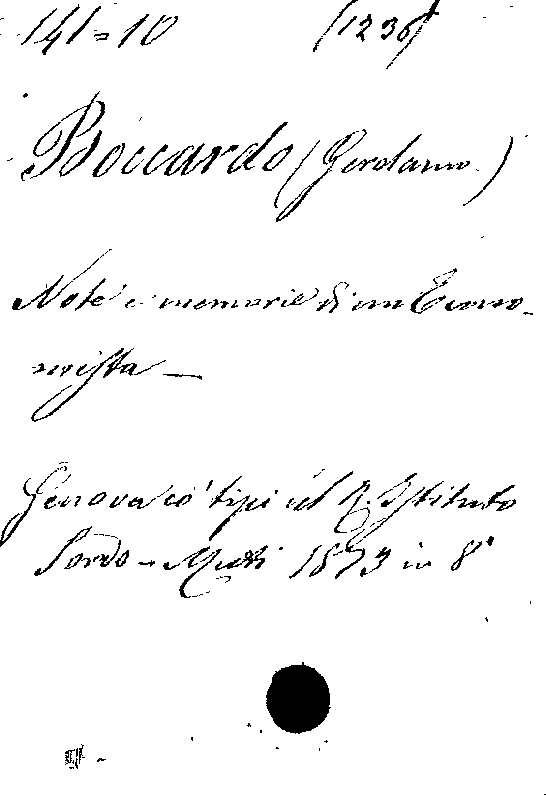 141=10 (1236)
Boccardo (Gerolamo.)
Note e memorie di un Econo-
mista —
Genova co' tipi del R. Istituto
Sordo-Muti 1873 in 8°